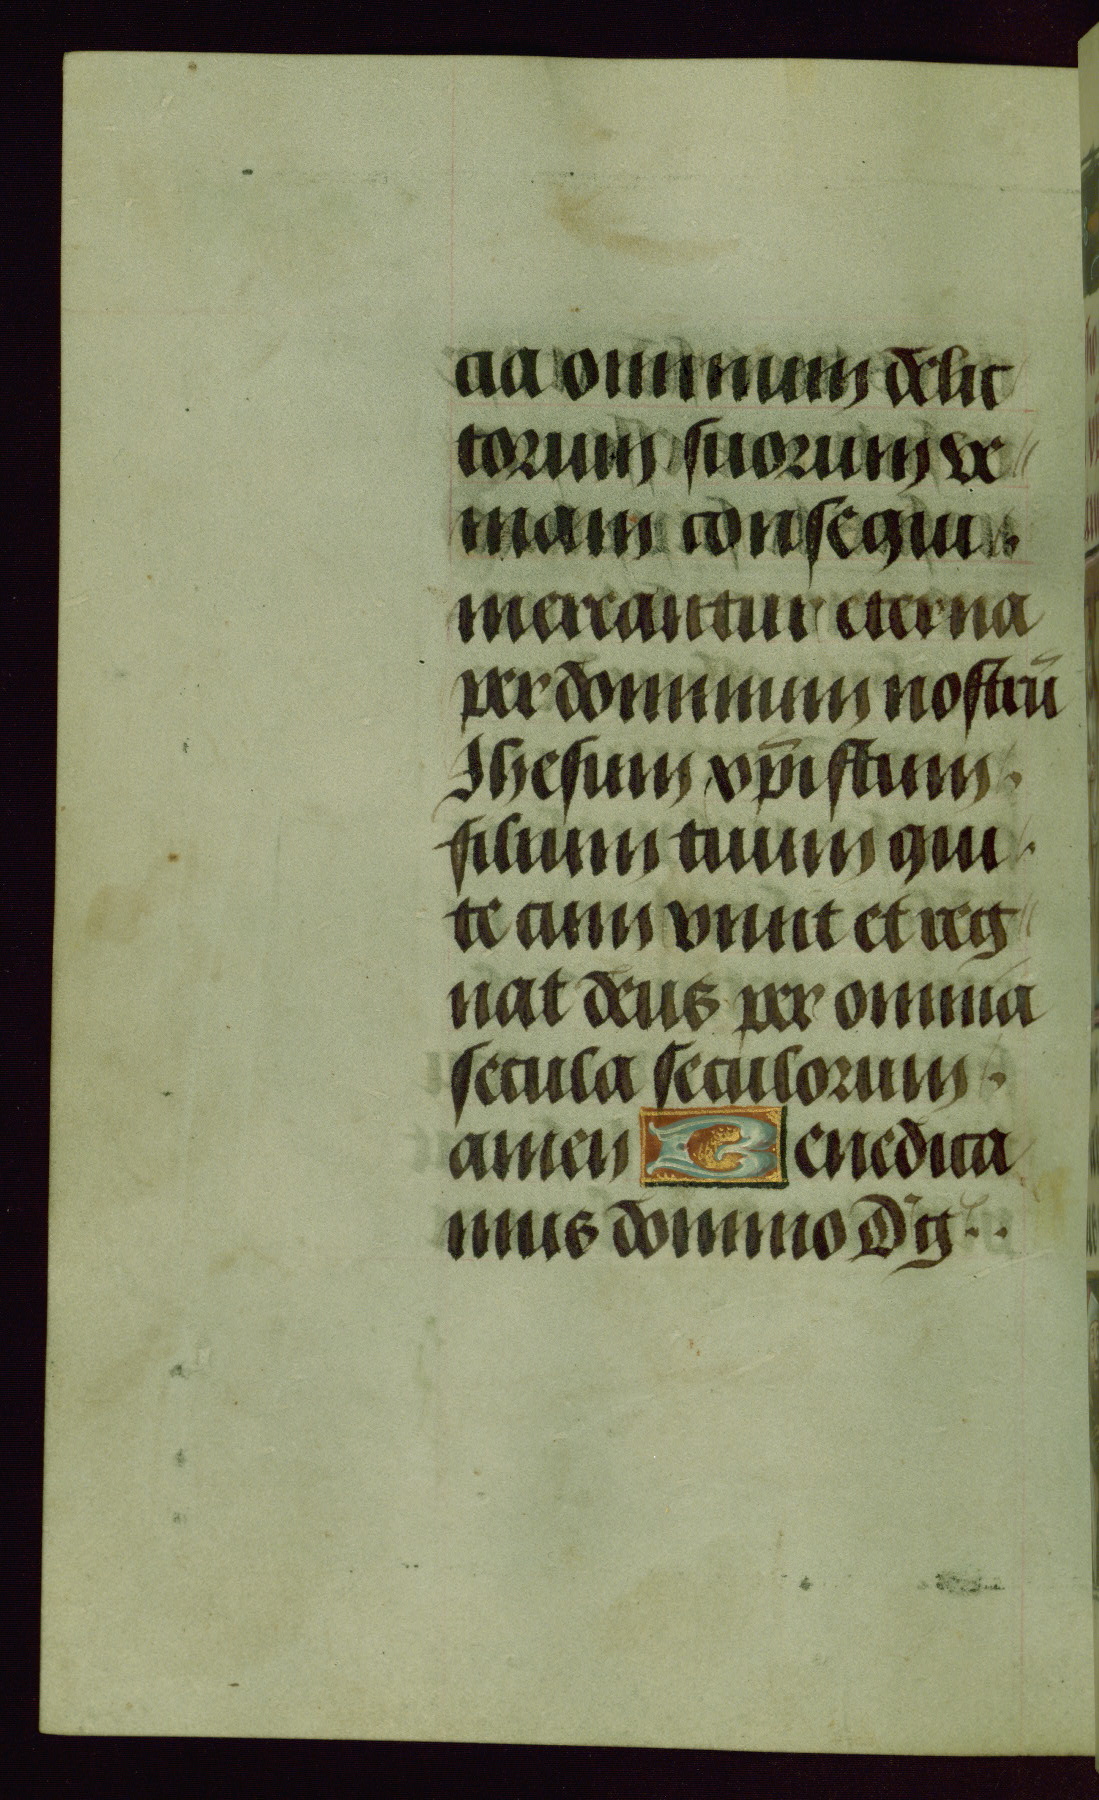 cia omnium delic
torum suorum ve
niam consequi
mereantur eterna
per dominum nostrū
Ihesum xp̄istum
filium tuum qui
te cum viuit et reg
nat deus per omnia
secula seculorum
amen Benedica
mus domino D'g